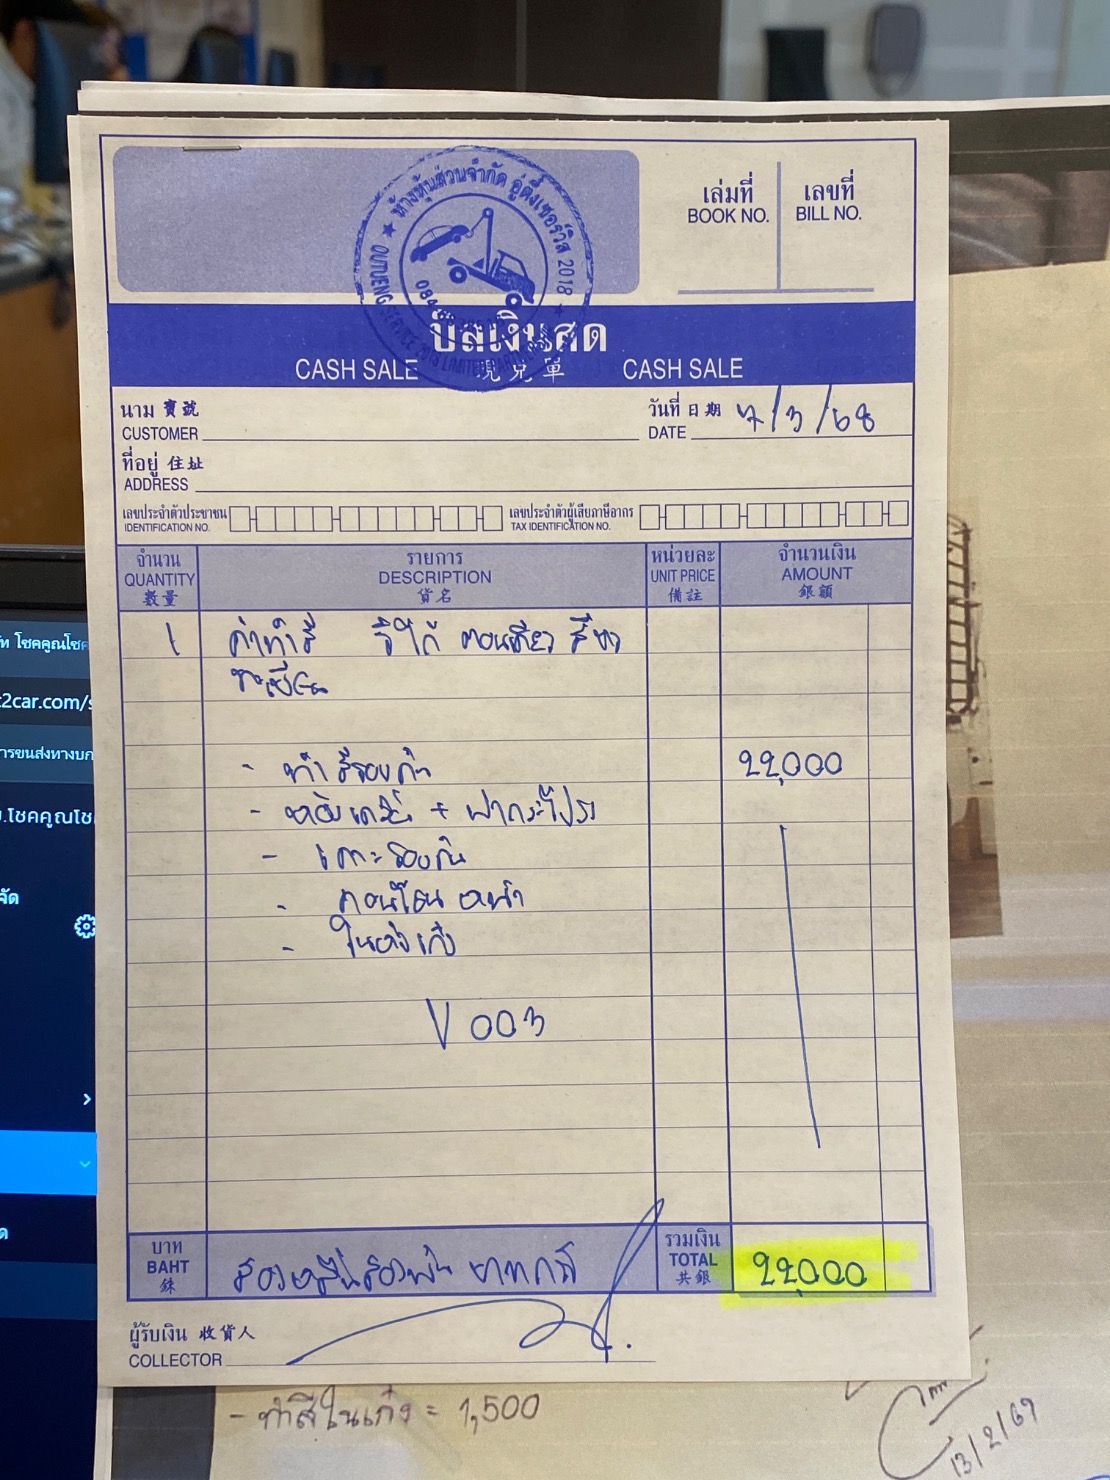 ห้างหุ้นส่วนจำกัด อู่ตึ๋งเซอร์วิส 2018
เล่มที่ เลขที่
BOOK NO. BILL NO.
บิลเงินสด
CASH SALE 現兌單 CASH SALE
นาม 寶號 วันที่ 日期 7/3/68
CUSTOMER DATE
ที่อยู่ 住址
ADDRESS
เลขประจำตัวประชาชน เลขประจำตัวผู้เสียภาษีอากร
IDENTIFICATION NO. TAX IDENTIFICATION NO.
จำนวน รายการ หน่วยละ จำนวนเงิน
QUANTITY DESCRIPTION UNIT PRICE AMOUNT
數量 貨名 備註 銀額
1 ค่าทำสี วีโก้ ตอนเดียว สีขาว
ทะเบียน
- ทำสีรอบคัน 22,000
- หลังคา + ฝากระโปรง
- เคาะรอบคัน
- คอนโซนหน้า
- ในห้องเก๋ง
V 003
บาท รวมเงิน
BAHT สองหมื่นสองพันบาทถ้วน TOTAL 22,000
銖 共銀
ผู้รับเงิน 收貨人
COLLECTOR
- ทำสีในเก๋ง = 1,500
13/2/69
ท โชคคูณโชค
2car.com/s
การขนส่งทางบก
.โชคคูณโช
จัด